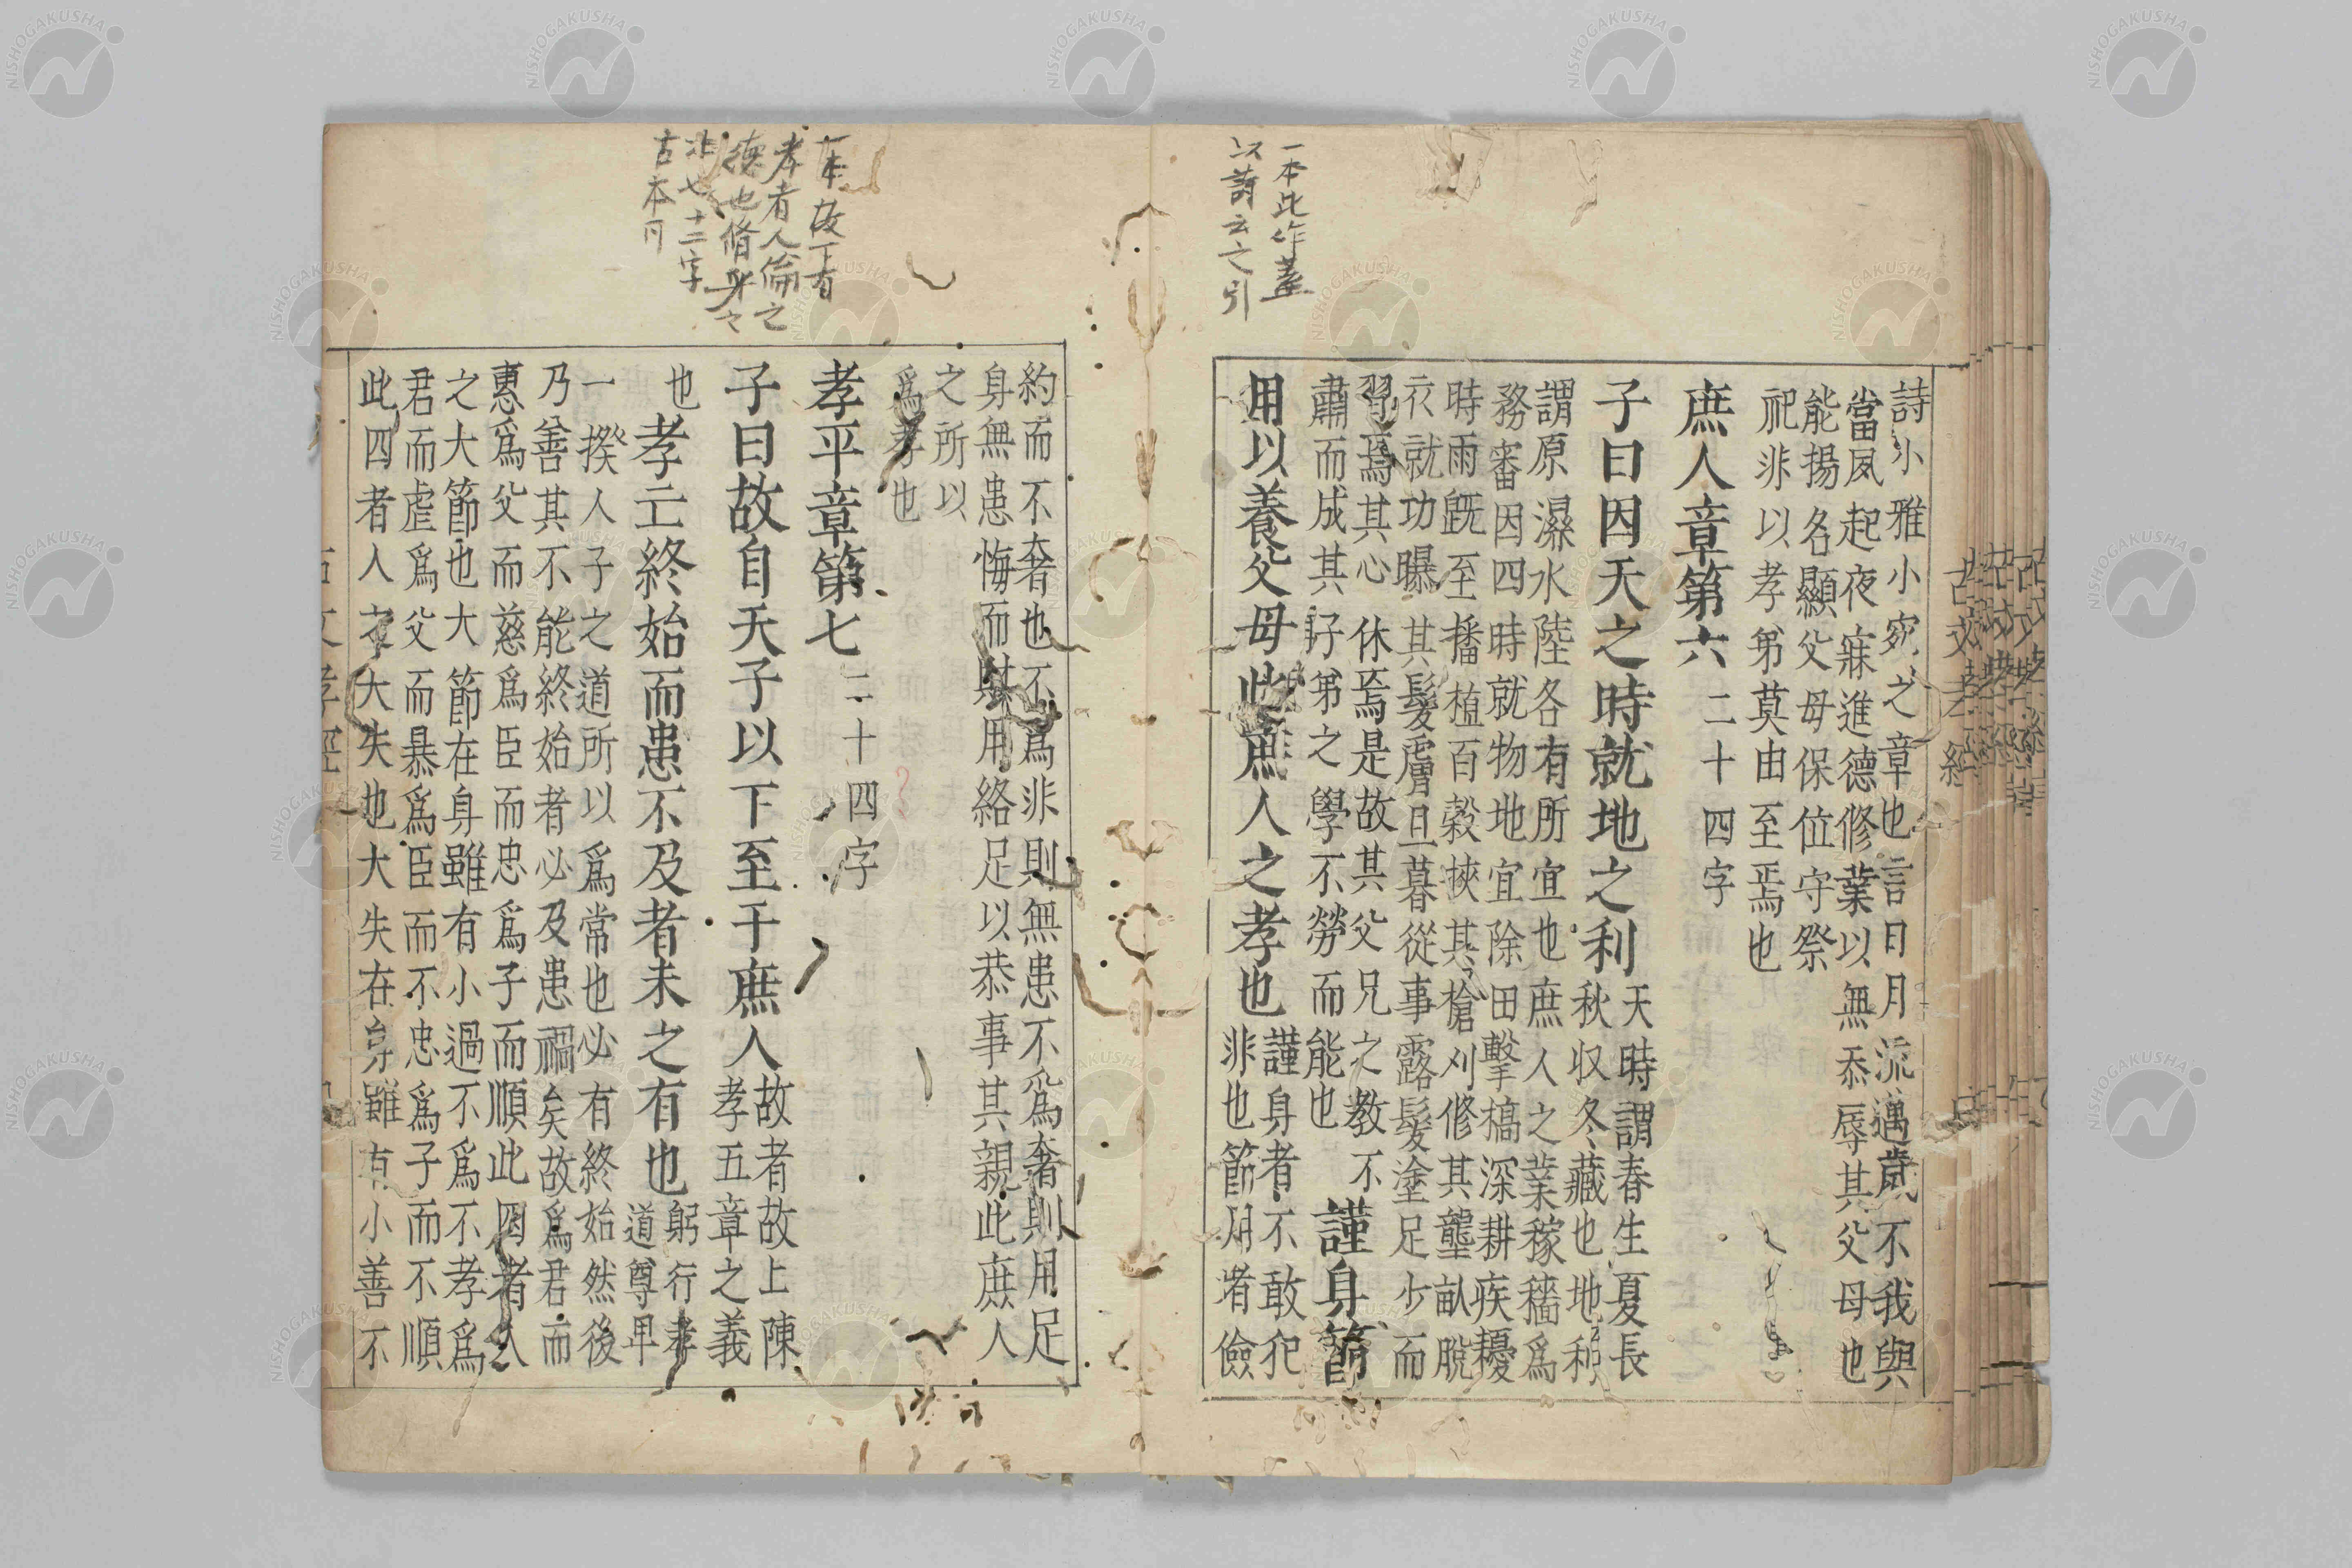 一本此作蓋
以詩云之引
詩小雅小宛之章也言日月流邁歲不我與
當夙起夜寐進德修業以無忝辱其父母也
能揚名顯父母保位守祭
祀非以孝弟莫由至焉也
庶人章第六 二十四字
子曰因天之時就地之利
天時謂春生夏長
秋収冬藏也地利
謂原濕水陸各有所宜也庶人之業稼穡爲
務審因四時就物地宜除田擊槁深耕疾耰
時雨既至播植百穀挾其槍刈修其壟畝脫
衣就功曝其髮膚旦暮從事露髮塗足少而
習焉其心休焉是故其父兄之教不
肅而成其子弟之學不勞而能也
謹身節
用以養父母此庶人之孝也
謹身者不敢犯
非也節用者儉
約而不奢也不爲非則無患不爲奢則用足
身無患悔而財用給足以恭事其親此庶人
之所以
爲孝也
一本故下有
孝者人倫之
德也脩身之
非也十二字
古本同
孝平章第七 二十四字
子曰故自天子以下至于庶人
故者故上陳
孝五章之義
也
孝亡終始而患不及者未之有也
躬行孝
道尊卑
一揆人子之道所以爲常也必有終始然後
乃善其不能終始者必及患禍矣故爲君而
惠爲父而慈爲臣而忠爲子而順此四者人
之大節也大節在身雖有小過不爲不孝爲
君而虐爲父而暴爲臣而不忠爲子而不順
此四者人之大失也大失在身雖有小善不
古文孝經